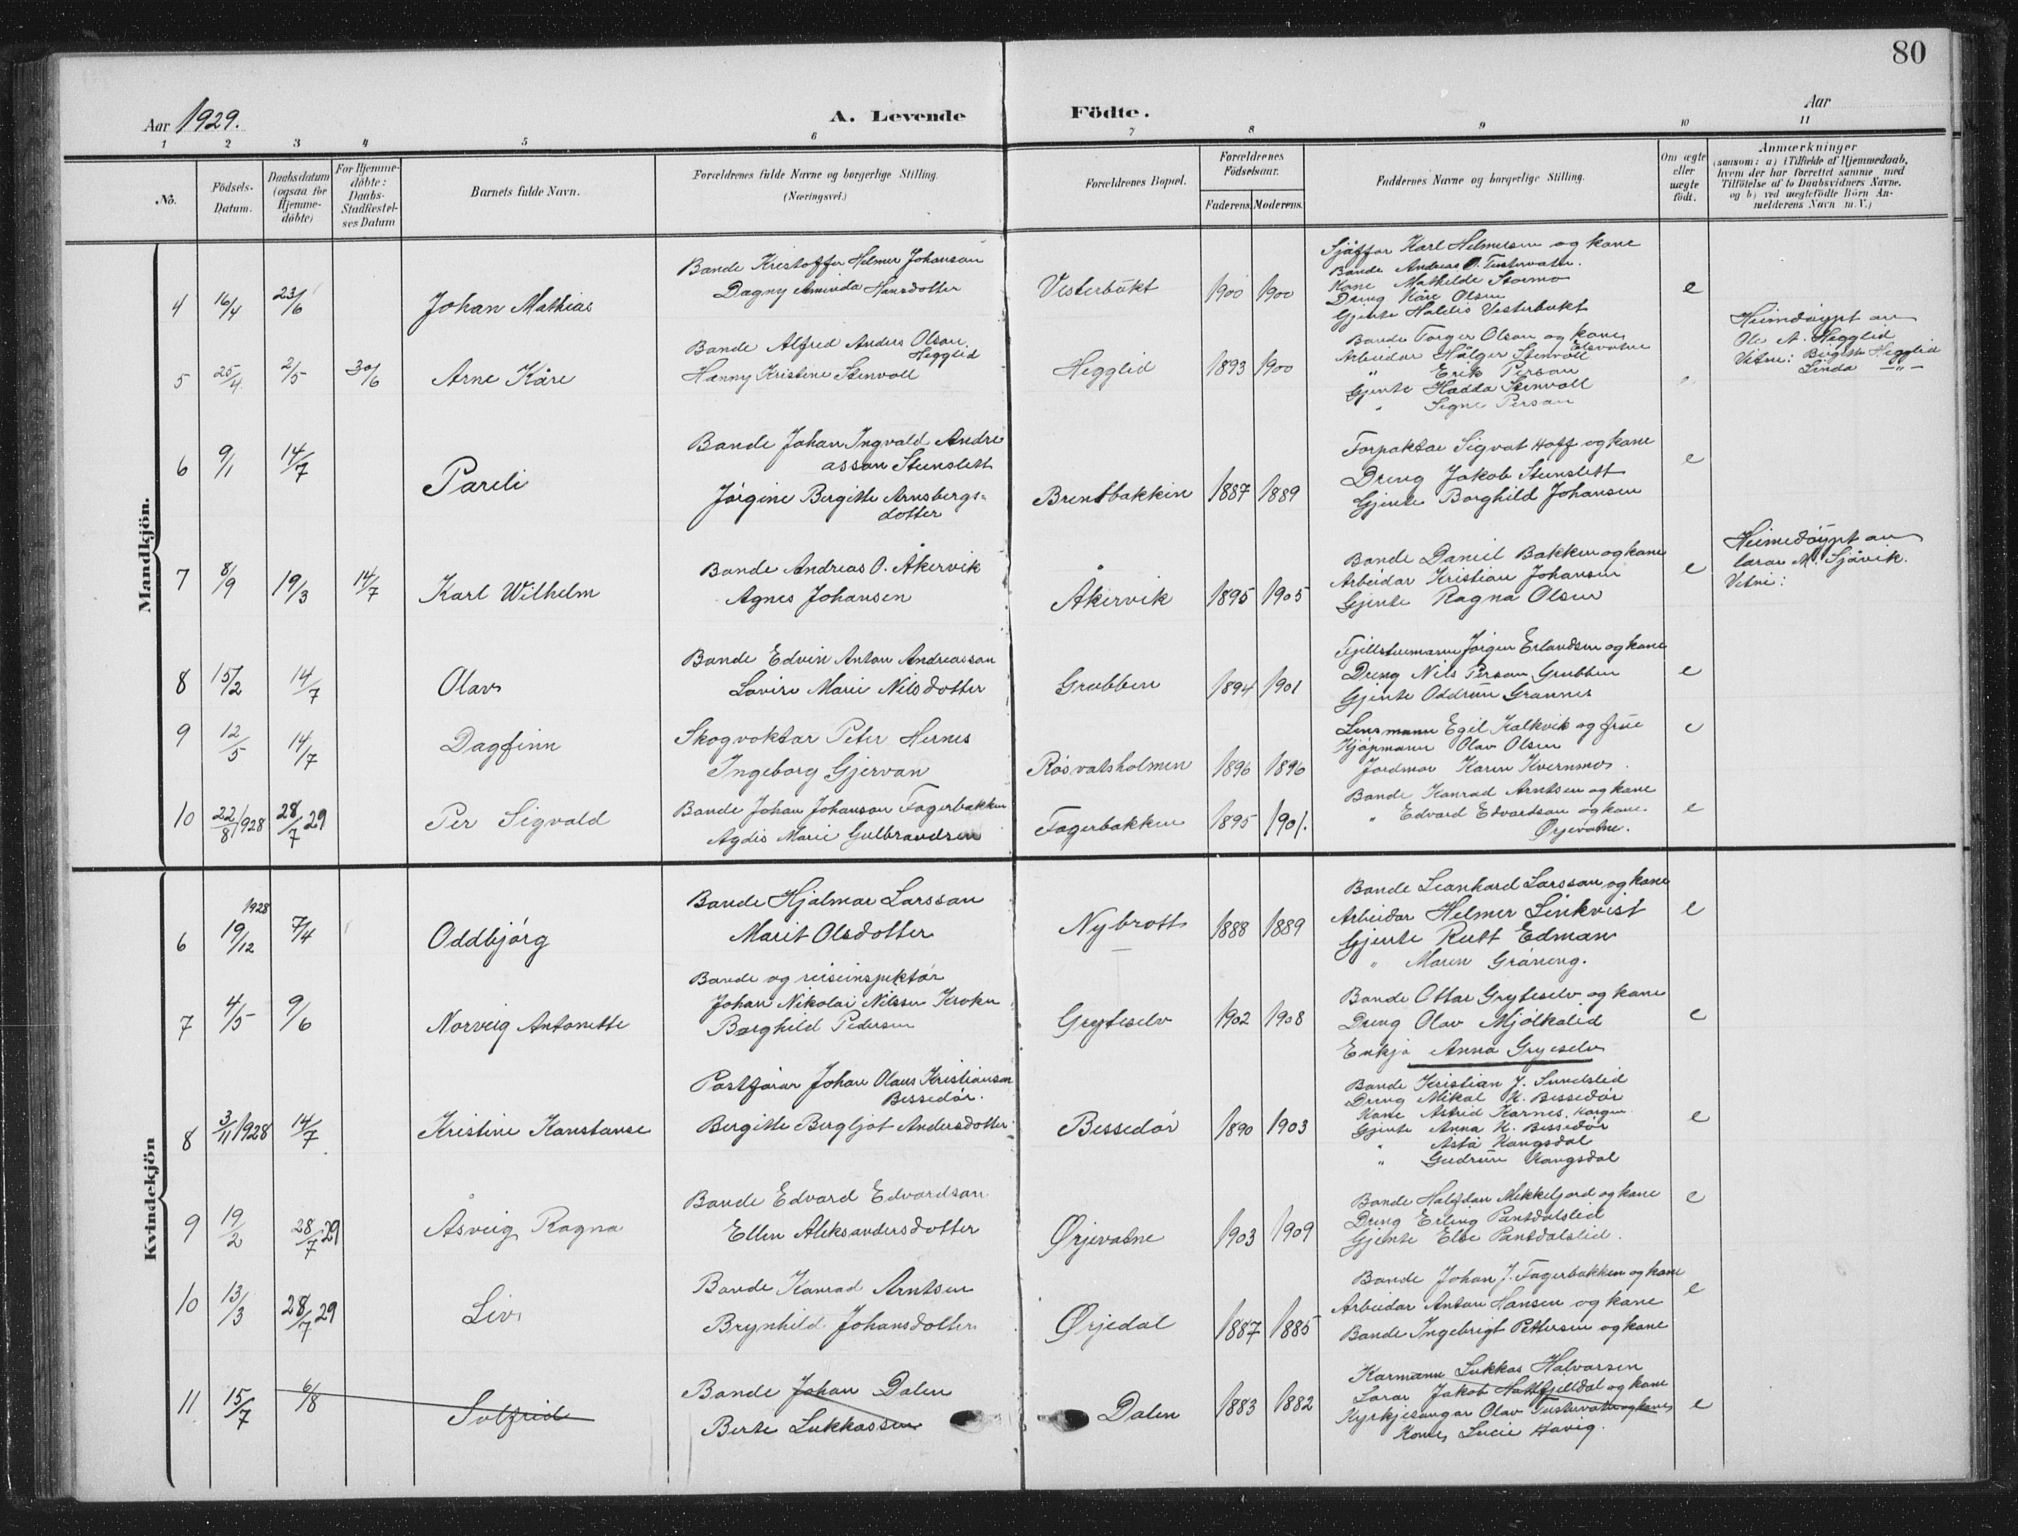 80
Aar 1929.
A. Levende Födte.
Aar
1 2 3 4 5 6 7 8 9 10 11
No.
Födsels-Datum.
Daabsdatum (ogsaa for Hjemmedöbte)
For Hjemmedöbte: Daabs-Stadfestelses Datum
Barnets fulde Navn.
Forældrenes fulde Navne og borgerlige Stilling. (Næringsvei.)
Forældrenes Bopæl.
Forældrenes Födselsaar.
Faderens. Moderens.
Faddernes Navne og borgerlige Stilling.
Om ægte eller uægte födt.
Anmærkninger
(saasom: a) i Tilfælde af Hjemmedaab,
hvem der har forrettet samme med
Tilföielse af to Daabsvidners Navne.
og b) ved uegtefödte Börn An-
melderens Navn m. V.)
Mandkjön.
4 16/4 23/6 Johan Mathias
Bonde Kristoffer Helmer Johanson
Dagny Aminda Hansdotter
Vesterbukt 1900 1900
Sjåffør Karl Helmersen og kone
Bonde Andreas O. Tustervatn.
Kone Mathilde Stormo
Dreng Kåre Olsen
Gjente Haldis Vesterbukt
e
5 25/4 2/5 30/6 Arne Kåre
Bonde Alfred Anders Olson Hegglid
Hanny Kristine Stenvoll
Hegglid 1893 1900
Bonde Torger Olson og kone
Arbeidar Hålger Stenvoll
" Erik Person
Gjente Hadda Stenvoll
" Signe Person
"
Heimedøypt av
Ole A. Hegglid
Vitne: Birgitte Hegglid
Linda —"—
6 9/1 14/7 Pareli
Bonde Johan Ingvald Andre
asson Stenslett
Jørgine Bergitte Arnsbergs-
dotter
Brentbakken 1887 1889
Forpaktar Sigvat Hoff og kone
Dreng Jakob Stenslett
Gjente Borghild Johansen
e
7 8/9 19/3 14/7 Karl Wilhelm
Bonde Andreas O. Åkervik
Agnes Johansen
Åkervik 1895 1905
Bonde Daniel Bakken og kone
Arbeidar Kristian Johansen
Gjente Ragna Olsen
e
Heimedøypt av
lærar M. Sjåvik.
Vitni:
8 15/2 14/7 Olav
Bonde Edvin Anton Andreasson
Lovise Marie Nilsdotter
Grubben 1894 1901
Fjellstuemann Jørgen Erlandsen og kone
Dreng Nils Person Grubben
Gjente Oddrun Grannes
e
9 12/5 14/7 Dagfinn
Skogvoktar Peter Hernes
Ingeborg Gjervan
Røsvatsholmen 1896 1896
Lensmann Egil Kalkvik og frue
Kjøpmann Olav Olsen
Jordmor Karen Kvernmo.
e
10 22/8 1928 28/7 29 Per Sigvald
Bonde Johan Johanson Fagerbakken
Agdis Marie Gulbrandsen
Fagerbakken 1895 1901.
Bonde Konrad Arntsen og kone
" Edvard Edvardson og kone.
Ørjevatne.
e
Kvindekjön
6 1928 19/12 7/4 Oddbjørg
Bonde Hjalmar Larsson
Marit Olsdotter
Nybrott 1888 1889
Bonde Leonhard Larsson og kone
Arbeidar Helmer Linkvist
Gjente Rutt Edman
" Maren Graneng.
e
7 4/5 9/6 Norveig Antonette
Bonde og reiseinspektør
Johan Nikolai Nilssen Kroken
Borghild Pedersen
Gryteselv 1902 1908
Bonde Ottar Gryteselv og kone
Dreng Olav Mjølkalid
Enkje Anna Gryteselv
e
8 3/11 1928 14/7 Kristine Konstanse
Postførar Johan Olaus Kristianson
Bessedør.
Bergitte Bergljot Andersdotter
Bessedør 1890 1903
Bonde Kristian J. Sundslid
Dreng Mikal K. Bessedør
Kone Astrid Karnes,
Gjente Anna K. Bessedør
" Asta Kongsdal
" Gudrun Kongsdal
e
9 19/2 28/7 29 Åsveig Ragna
Bonde Edvard Edvardson
Ellen Aleksandersdotter
Ørjevatne 1903 1909
Bonde Halfdan Mikkeljord og kone
Dreng Erling Pantdalslid
Gjente Else Pantdalslid.
e
10 13/3 28/7 29 Liv
Bonde Konrad Arntsen
Brynhild Johansdotter
Ørjedal 1887 1885
Bonde Johan J. Fagerbakken og kone
Arbeidar Anton Hansen og kone
Bonde Ingebrigt Pettersen og kone
e
11 15/7 6/8 Solfrid
Bonde Johan Dalen
Berte Lukkassen
Dalen 1883 1882
Karmann Lukkas Halvorsen
Lærar Jakob Hattfjelldal og kone
Kyrkjesongar Olav Tustervatn og kone
Kone Lucie Havig.
e